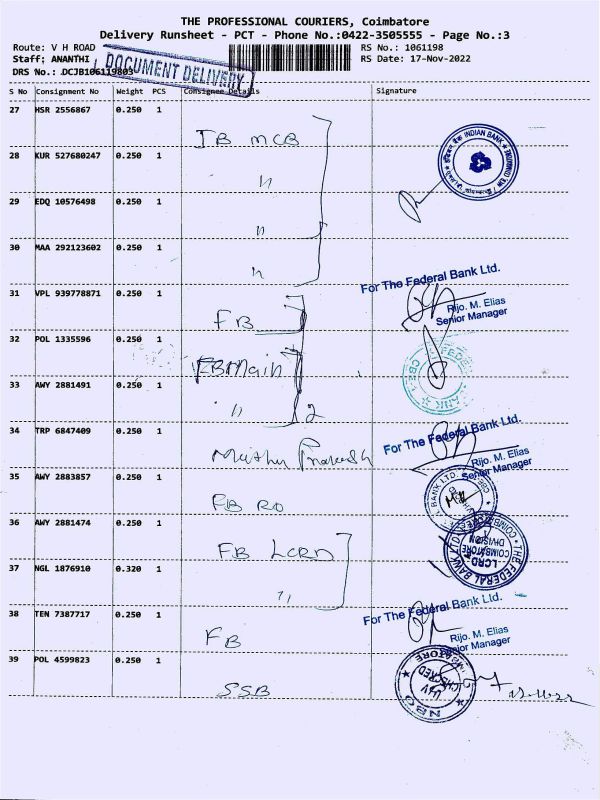 THE PROFESSIONAL COURIERS, Coimbatore
Delivery Runsheet - PCT - Phone No.:0422-3505555 - Page No.:3
Route: V H ROAD RS No.: 1061198
Staff: ANANTHI RS Date: 17-Nov-2022
DRS No.: DCJB106119803
DOCUMENT DELIVERY
S No Consignment No Weight PCS Consignee Details Signature
27 HSR 2556867 0.250 1
IB MCB
INDIAN BANK
28 KUR 527680247 0.250 1
"
29 EDQ 10576498 0.250 1
"
30 MAA 292123602 0.250 1
"
For The Federal Bank Ltd.
31 VPL 939778871 0.250 1
Rijo. M. Elias
Senior Manager
FB
32 POL 1335596 0.250 1
FB Main
33 AWY 2881491 0.250 1
" 2
34 TRP 6847409 0.250 1
For The Federal Bank Ltd.
Rijo. M. Elias
Senior Manager
35 AWY 2883857 0.250 1
FB RO
36 AWY 2881474 0.250 1
FB LCRD
THE FEDERAL BANK LTD
LCRD
COIMBATORE
DIVISION
37 NGL 1876910 0.320 1
"
For The Federal Bank Ltd.
38 TEN 7387717 0.250 1
Rijo. M. Elias
Senior Manager
FB
39 POL 4599823 0.250 1
SSB